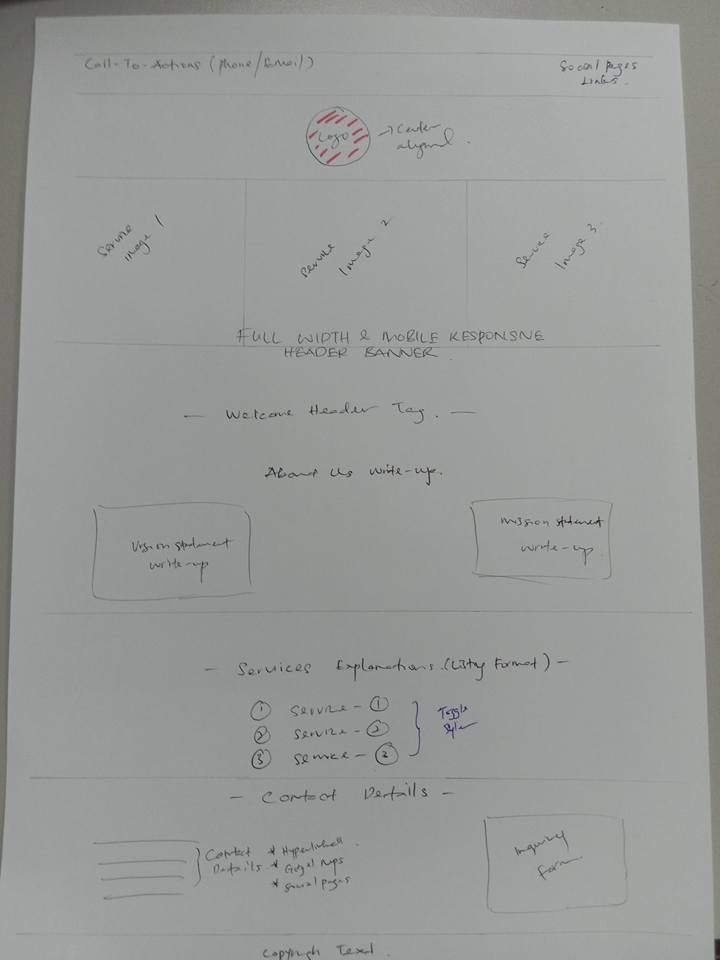 Call-To-Actions (Phone/Email)
Social Pages
Links.
Logo
→ Center
aligned.
Service
Image 1
Service
Image 2
Service
Image 3.
FULL WIDTH & MOBILE RESPONSIVE
HEADER BANNER
— Welcome Header Tag. —
About Us Write-up.
Vision statement
write-up
Mission statement
write-up
— Services Explanations. (Listing Format) —
1 Service - 1
2 Service - 2
3 Service - 3
Toggle
Style
— Contact Details —
Contact * Hyperlinked
Details * Googel Maps
* Social pages
Inquiry
Form
Copyright Text.